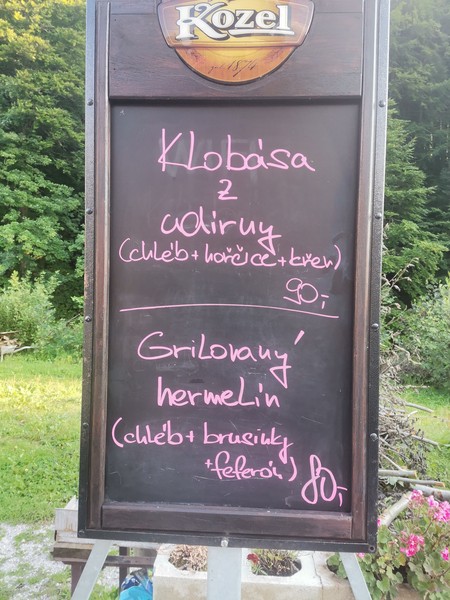 Kozel
Klobása
z
udírny
(chléb+hořčice+křen)
90,-
Grilovaný
hermelín
(chléb+brusinky
+feferon)
80,-